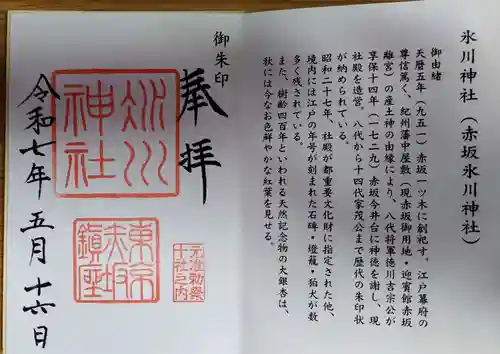 氷川神社（赤坂氷川神社）
御由緒
天暦五年（九五一）赤坂一ツ木に創祀す。江戸幕府の
尊信篤く、紀州藩中屋敷（現赤坂御用地・迎賓館赤坂
離宮）の産土神の由縁により、八代将軍徳川吉宗公が
享保十四年（一七二九）赤坂今井台に神徳を謝し、現
社殿を造営。八代から十四代家茂公まで歴代の朱印状
が納められている。
昭和二十七年、社殿が都重要文化財に指定された他、
境内には江戸の年号が刻まれた石碑・燈籠・狛犬が数
多く残されている。
また、樹齢四百年といわれる天然記念物の大銀杏は、
秋には今なお色鮮やかな紅葉を見せる。
御朱印
奉拝
氷川
神社
元准勅祭
十社之内
東京
赤坂
鎮座
令和七年五月十六日